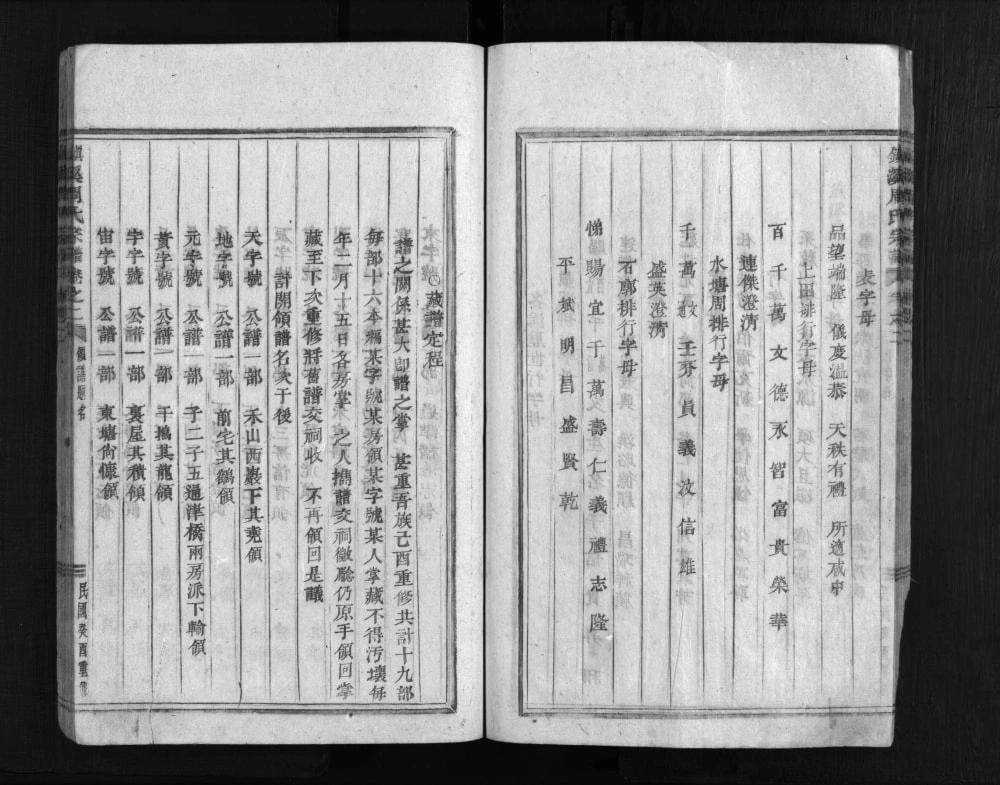 表字母
品望端隆 儀度溫恭 天秩有禮 所適咸中
上田排行字母
百千萬女德永智富貴榮華
連傑澄清
水塘周排行字母
千萬文壬員義汝信雄
盛英澄清
石廓排行字母
悌賜宜千萬壽仁義禮志隆
平斌明昌盛賢乾
藏譜定程
譜之關係甚大卽譜之掌 甚重吾族己酉重修共計十九部
每部十六本編某字號某房領某字號某人掌藏不得汚壞每
年二月十五日各房掌 之人携譜交祠徵驗仍原手領回掌
藏至下次重修將舊譜交祠收 不再領回是議
計開領譜名次于後
天字號 公譜一部 禾山西巖下其堯領
地字號 公譜一部 前宅其鶴領
元字號 公譜一部 子二子五通津橋兩房派下輪領
黃字號 公譜一部 干塢其龍領
宇字號 公譜一部 裏屋其積領
宙字號 公譜一部 東塘尙傔領
周氏宗譜卷之二
領譜題名
民國癸酉重修